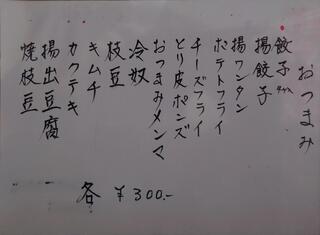 おつまみ
餃子
揚餃子
揚ワンタン
ポテトフライ
チーズフライ
とり皮ポンズ
おつまみメンマ
冷奴
枝豆
キムチ
カクテキ
揚出豆腐
焼枝豆
各 ¥300.-